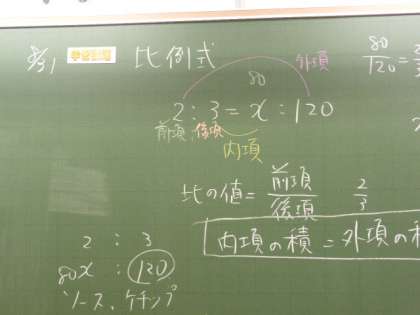 比例式
外項
80
120
80
2 : 3 = x : 120
前項 後項
内項
比の値 = 前項/後項 2/3
内項の積 = 外項の積
2 : 3
80x : 120
ソース、ケチップ